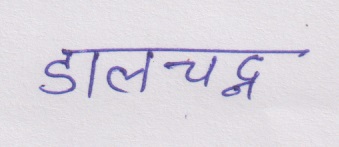 डालचद्र